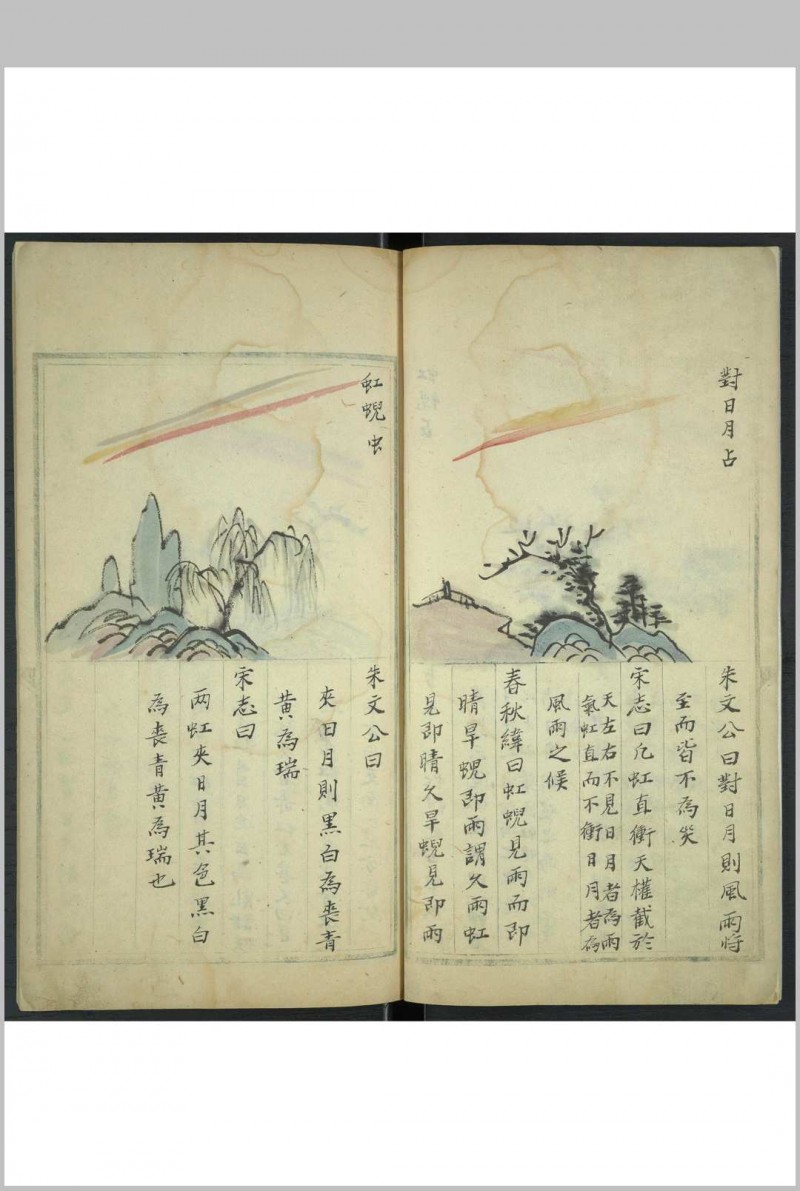 對日月占
朱文公曰對日月則風雨將
至而皆不為災
宋志曰凡虹直衝天權截於
天左右不見日月者為雨
氣虹直而不衝日月者為
風雨之候
春秋緯曰虹蜺見雨而即
晴旱蜺即雨謂久雨虹
見即晴久旱蜺見即雨
虹蜺虫
朱文公曰
夾日月則黑白為喪青
黃為瑞
宋志曰
两虹夾日月其色黑白
為喪青黃為瑞也